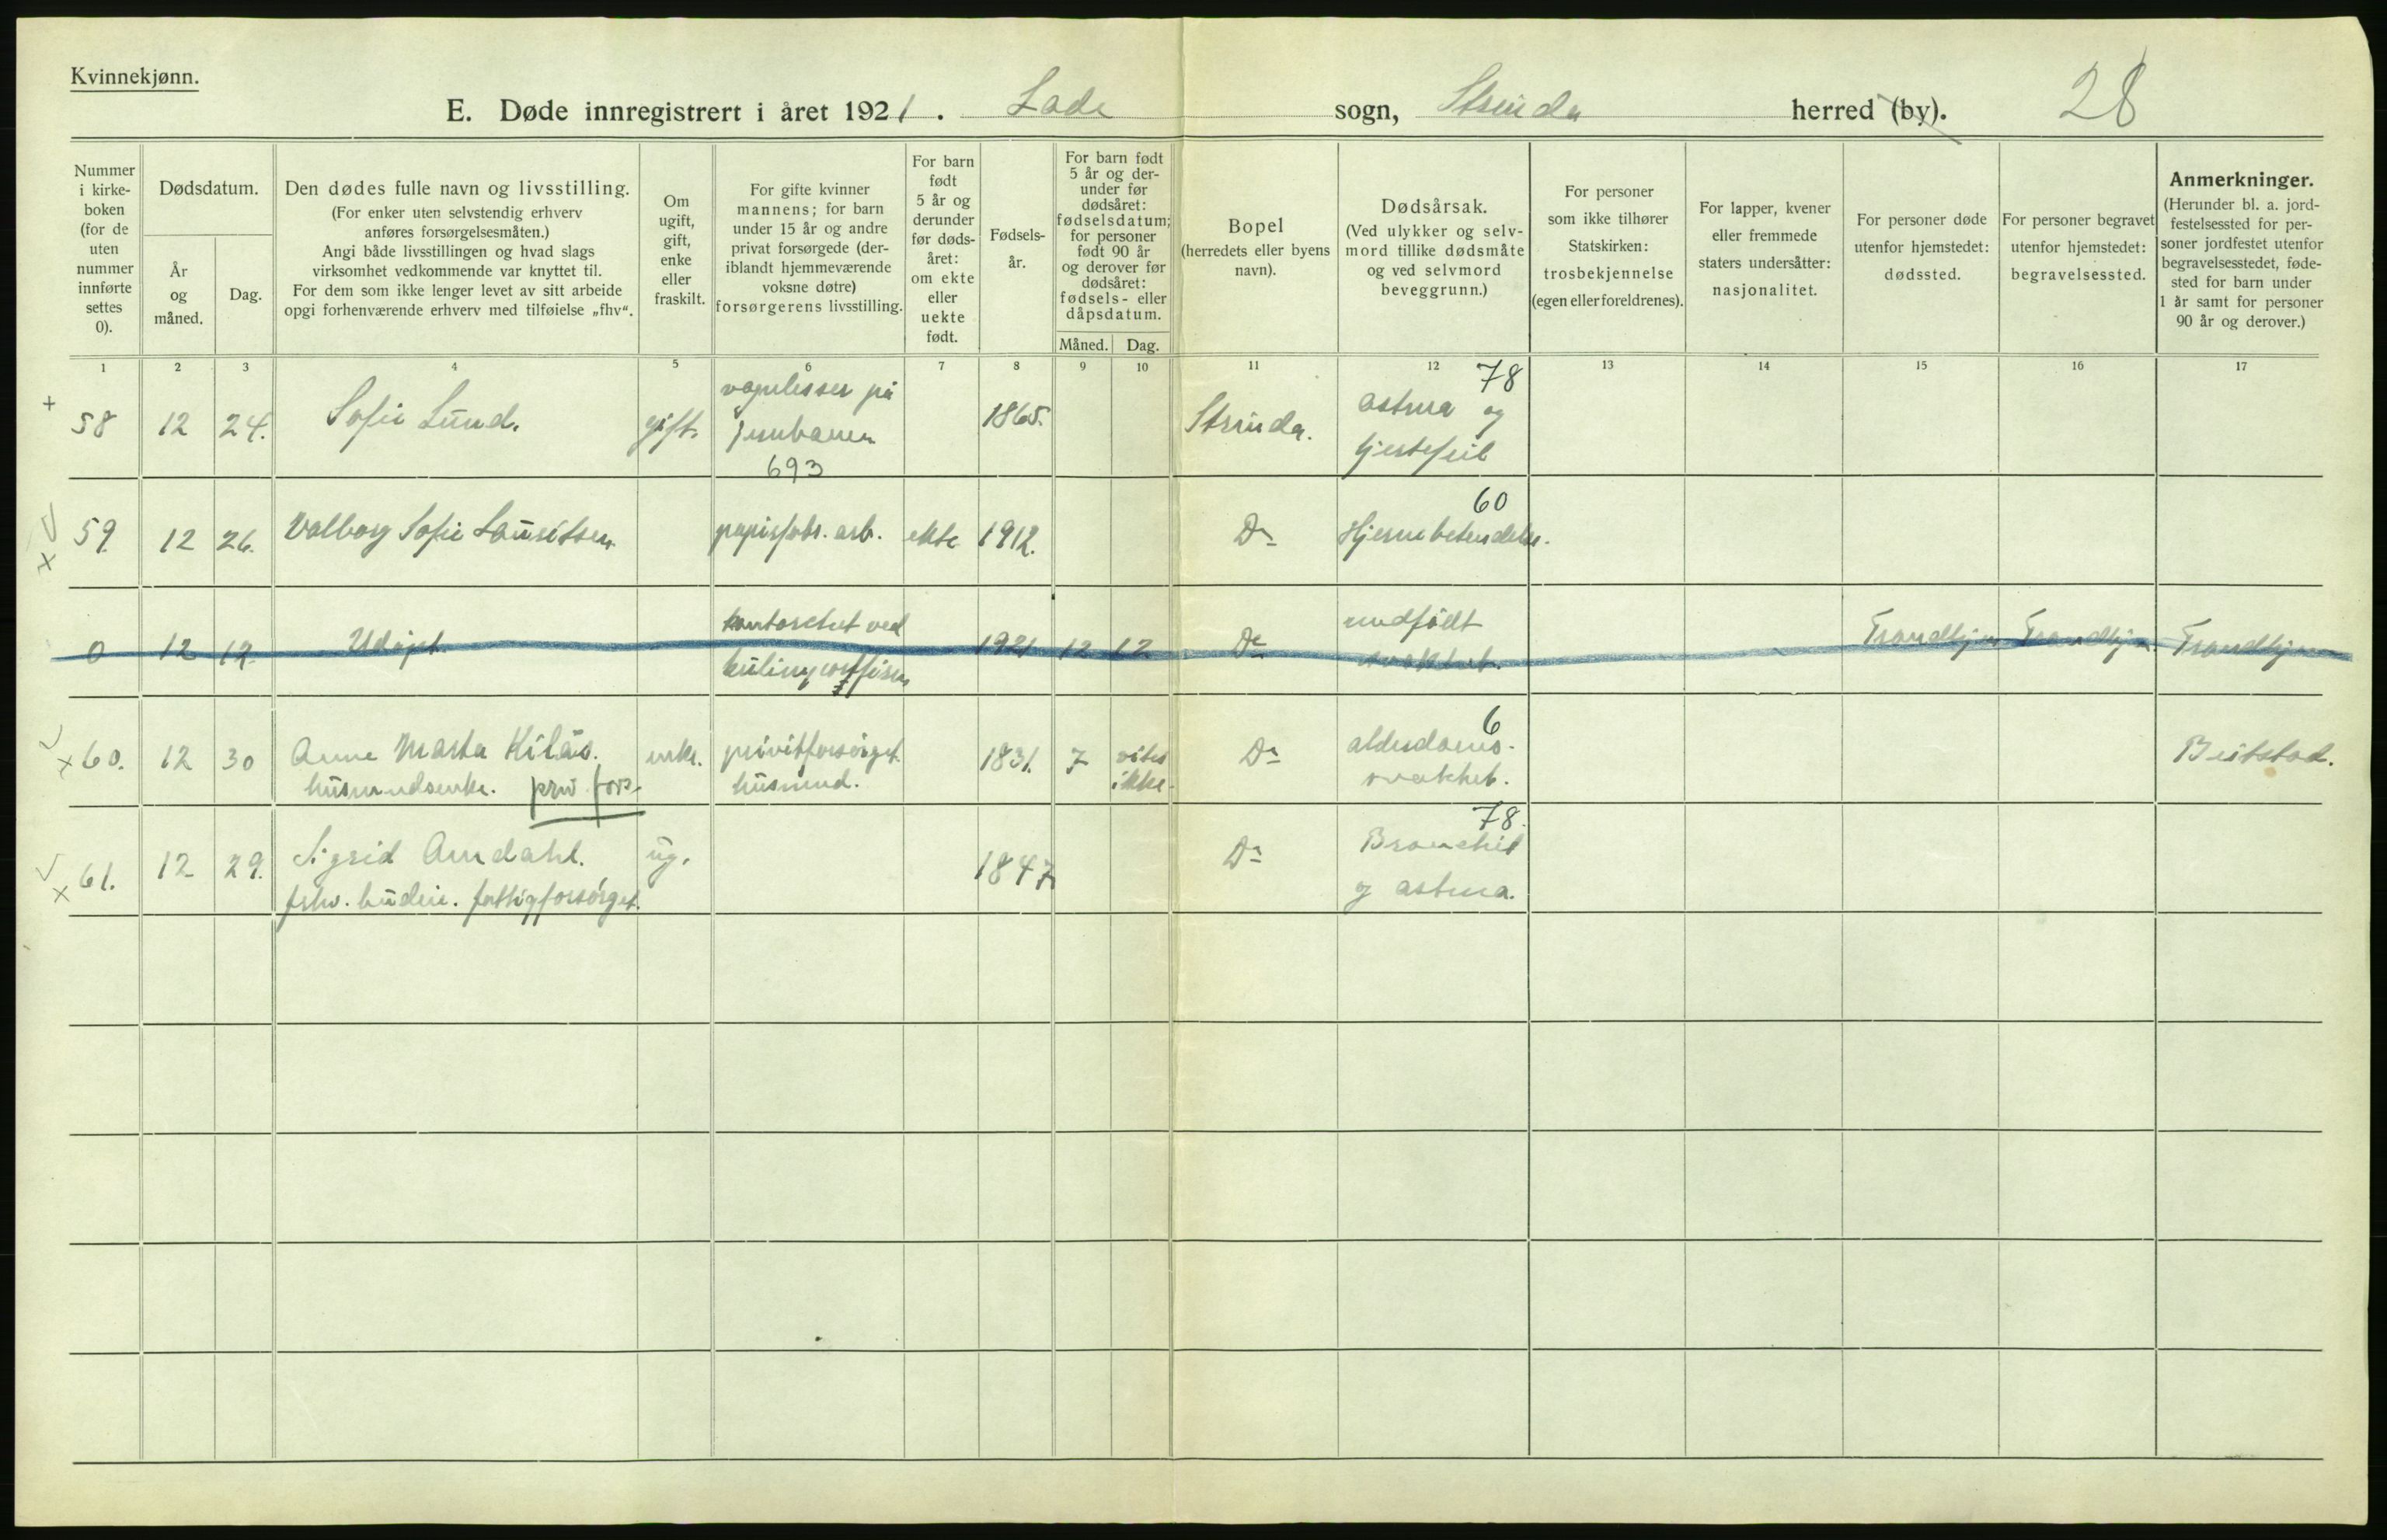 Kvinnekjønn.
E. Døde innregistrert i året 1921. Lade sogn, Strinda herred (by). 28
Nummer i kirke-boken (for de uten nummer innførte settes 0).
Dødsdatum.
År og måned.
Dag.
Den dødes fulle navn og livsstilling.
(For enker uten selvstendig erhverv
anføres forsørgelsesmåten.)
Angi både livsstillingen og hvad slags
virksomhet vedkommende var knyttet til.
For dem som ikke lenger levet av sitt arbeide
opgi forhenværende erhverv med tilføielse „fhv“.
Om
ugift,
gift,
enke
eller
fraskilt.
For gifte kvinner
mannens; for barn
under 15 år og andre
privat forsørgede (der-
iblandt hjemmeværende
voksne døtre)
forsørgerens livsstilling.
For barn
født
5 år og
derunder
før døds-
året:
om ekte
eller
uekte
født.
Fødsels-
år.
For barn født
5 år og der-
under før
dødsåret:
fødselsdatum;
for personer
født 90 år
og derover før
dødsåret:
fødsels- eller
dåpsdatum.
Måned. Dag.
Bopel
(herredets eller byens
navn).
Dødsårsak.
(Ved ulykker og selv-
mord tillike dødsmåte
og ved selvmord
beveggrunn.)
For personer
som ikke tilhører
Statskirken:
trosbekjennelse
(egen eller foreldrenes).
For lapper, kvener
eller fremmede
staters undersåtter:
nasjonalitet.
For personer døde
utenfor hjemstedet:
dødssted.
For personer begravet
utenfor hjemstedet:
begravelsessted.
Anmerkninger.
(Herunder bl. a. jord-
festelsessted for per-
soner jordfestet utenfor
begravelsesstedet, føde-
sted for barn under
1 år samt for personer
90 år og derover.)
1 2 3 4 5 6 7 8 9 10 11 12 13 14 15 16 17
58 12 24. Sofie Lund. gift. på jernbanen 693 1865. Strinda. 78 astma og hjertefeil
59. 12 26. Valborg Sofie Lauritsen papirfabr. arb. ekte 1912. Do 60 Hjernebetendelse.
0 12 12. Udøpt. ved 1921 12 12 Do medfødt svakhet. Trondhjem Trondhjem. Trondhjem
60. 12 30 Anne Marta Kilås. husmandsenke. priv. fors. enke. privatforsørget husmand. 1831. 7 vites ikke. Do 6 alderdoms- svakhet. Beitstad.
61. 12 29. Sigrid Amdahl. fhv. budeie. fattigforsørget. ug. 1847 Do 78. Bronchit og astma.